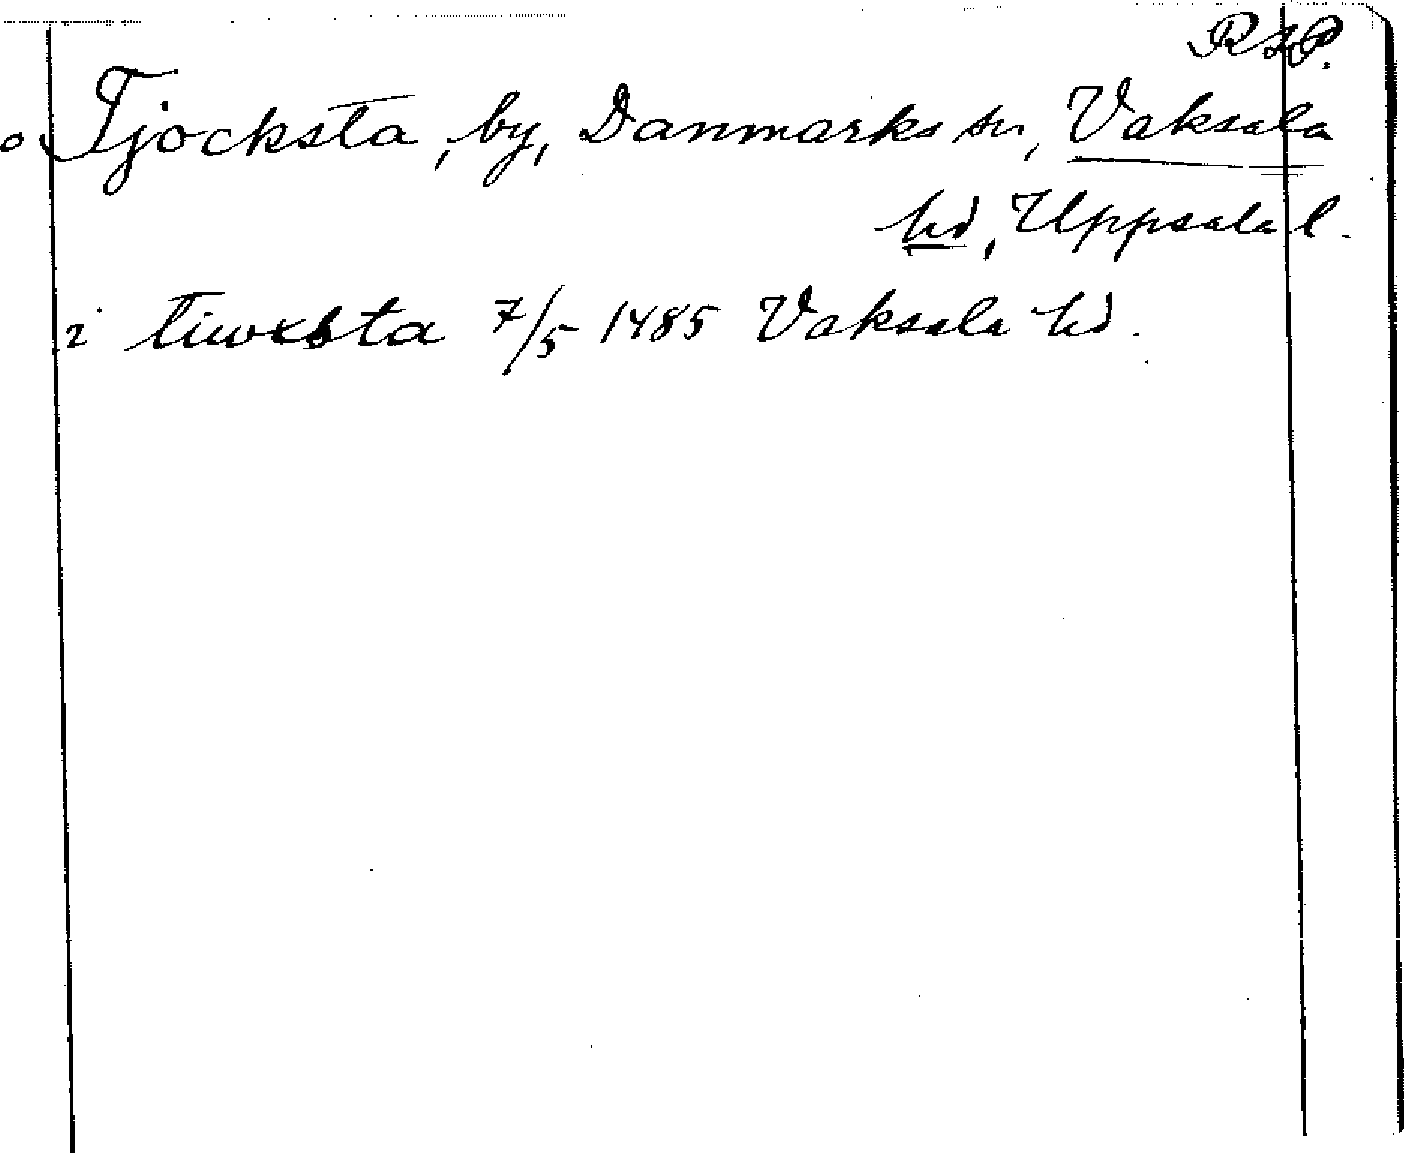 RAP.
Tjocksta, by, Danmarks sn, Vaksala
hd, Uppsala l.
i tiwxsta 7/5 1485 Vaksala hd.